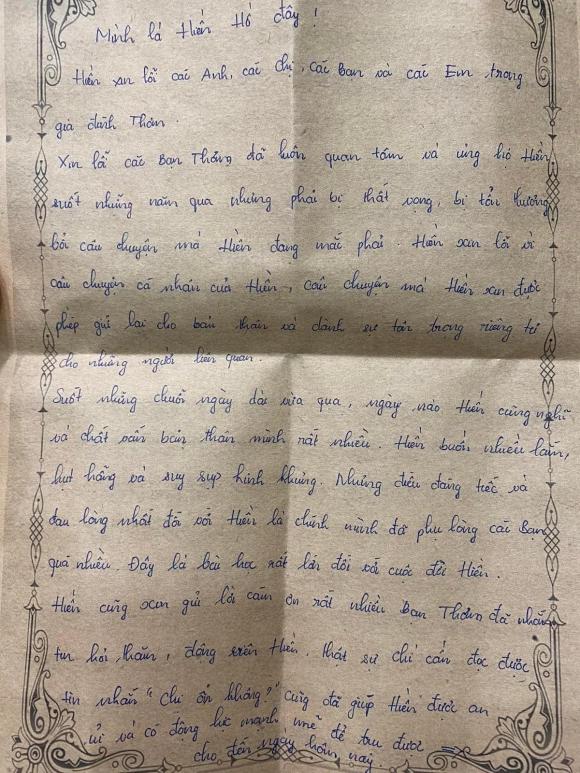 Mình là Hiền Hồ đây !
Hiền xin lỗi các Anh, các Chị, các Bạn và các Em trong
gia đình Thơm.
Xin lỗi các Bạn Thơm đã luôn quan tâm và ủng hộ Hiền
suốt những năm qua nhưng phải bị thất vọng, bị tổn thương
bởi câu chuyện mà Hiền đang mắc phải. Hiền xin lỗi vì
câu chuyện cá nhân của Hiền, câu chuyện mà Hiền xin được
phép giữ lại cho bản thân và dành sự tôn trọng riêng tư
cho những người liên quan.
Suốt những chuỗi ngày dài vừa qua, ngày nào Hiền cũng nghĩ
và chất vấn bản thân mình rất nhiều. Hiền buồn nhiều lắm,
hụt hẫng và suy sụp kinh khủng. Nhưng điều đáng tiếc và
đau lòng nhất đối với Hiền là chính mình đã phụ lòng các Bạn
quá nhiều. Đây là bài học rất lớn đối với cuộc đời Hiền.
Hiền cũng xin gửi lời cảm ơn rất nhiều Bạn Thơm đã nhắn
tin hỏi thăm, động viên Hiền. Thật sự chỉ cần đọc được
tin nhắn "Chị ổn không?" cũng đã giúp Hiền được an
ủi và có động lực mạnh mẽ để trụ được
cho đến ngày hôm nay.